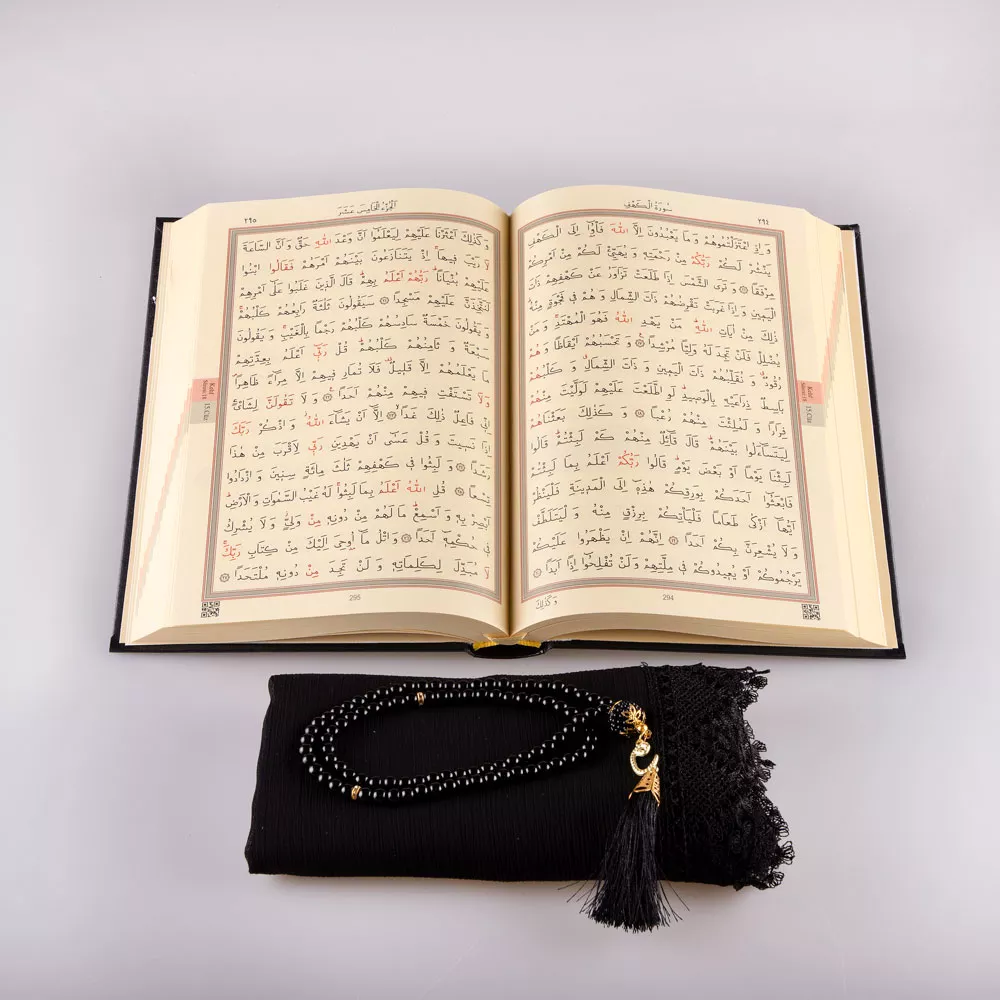 سُورَةُ الْكَهْفِ ٢٩٤
وَ اِذِ اعْتَزَلْتُمُوهُمْ وَ مَا يَعْبُدُونَ اِلَّا اللّٰهَ فَأْوُٓا اِلَى الْكَهْفِ
يَنْشُرْ لَكُمْ رَبُّكُمْ مِنْ رَحْمَتِهٖ وَ يُهَيِّئْ لَكُمْ مِنْ اَمْرِكُمْ
مِرْفَقًا ﴿١٦﴾ وَ تَرَى الشَّمْسَ اِذَا طَلَعَتْ تَزَاوَرُ عَنْ كَهْفِهِمْ ذَاتَ
الْيَمٖينِ وَ اِذَا غَرَبَتْ تَقْرِضُهُمْ ذَاتَ الشِّمَالِ وَ هُمْ فٖي فَجْوَةٍ مِنْهُ
ذٰلِكَ مِنْ اٰيَاتِ اللّٰهِ مَنْ يَهْدِ اللّٰهُ فَهُوَ الْمُهْتَدِ وَ مَنْ
يُضْلِلْ فَلَنْ تَجِدَ لَهُ وَلِيًّا مُرْشِدًا ﴿١٧﴾ وَ تَحْسَبُهُمْ اَيْقَاظًا وَ هُمْ
رُقُودٌ وَ نُقَلِّبُهُمْ ذَاتَ الْيَمٖينِ وَ ذَاتَ الشِّمَالِ وَ كَلْبُهُمْ
بَاسِطٌ ذِرَاعَيْهِ بِالْوَصٖيدِ لَوِ اطَّلَعْتَ عَلَيْهِمْ لَوَلَّيْتَ مِنْهُمْ
فِرَارًا وَ لَمُلِئْتَ مِنْهُمْ رُعْبًا ﴿١٨﴾ وَ كَذٰلِكَ بَعَثْنَاهُمْ
لِيَتَسَٓاءَلُوا بَيْنَهُمْ قَالَ قَٓائِلٌ مِنْهُمْ كَمْ لَبِثْتُمْ قَالُوا
لَبِثْنَا يَوْمًا اَوْ بَعْضَ يَوْمٍ قَالُوا رَبُّكُمْ اَعْلَمُ بِمَا لَبِثْتُمْ
فَابْعَثُٓوا اَحَدَكُمْ بِوَرِقِكُمْ هٰذِهٖٓ اِلَى الْمَدٖينَةِ فَلْيَنْظُرْ
اَيُّهَٓا اَزْكٰى طَعَامًا فَلْيَأْتِكُمْ بِرِزْقٍ مِنْهُ وَ لْيَتَلَطَّفْ
وَ لَا يُشْعِرَنَّ بِكُمْ اَحَدًا ﴿١٩﴾ اِنَّهُمْ اِنْ يَظْهَرُوا عَلَيْكُمْ
يَرْجُمُوكُمْ اَوْ يُعٖيدُوكُمْ فٖي مِلَّتِهِمْ وَ لَنْ تُفْلِحُٓوا اِذًا اَبَدًا ﴿٢٠﴾
وَ كَذٰلِكَ
294
Kehf
Suresi 18
15.Cüz
اَلْجُزْءُ الْخَامِسَ عَشَرَ ٢٩٥
وَ كَذٰلِكَ اَعْثَرْنَا عَلَيْهِمْ لِيَعْلَمُٓوا اَنَّ وَعْدَ اللّٰهِ حَقٌّ وَ اَنَّ السَّاعَةَ
لَا رَيْبَ فٖيهَا اِذْ يَتَنَازَعُونَ بَيْنَهُمْ اَمْرَهُمْ فَقَالُوا ابْنُوا
عَلَيْهِمْ بُنْيَانًا رَبُّهُمْ اَعْلَمُ بِهِمْ قَالَ الَّذٖينَ غَلَبُوا عَلٰٓى اَمْرِهِمْ
لَنَتَّخِذَنَّ عَلَيْهِمْ مَسْجِدًا ﴿٢١﴾ سَيَقُولُونَ ثَلٰثَةٌ رَابِعُهُمْ كَلْبُهُمْ
وَ يَقُولُونَ خَمْسَةٌ سَادِسُهُمْ كَلْبُهُمْ رَجْمًا بِالْغَيْبِ وَ يَقُولُونَ
سَبْعَةٌ وَ ثَامِنُهُمْ كَلْبُهُمْ قُلْ رَبّٖٓي اَعْلَمُ بِعِدَّتِهِمْ
مَا يَعْلَمُهُمْ اِلَّا قَلٖيلٌ فَلَا تُمَارِ فٖيهِمْ اِلَّا مِرَٓاءً ظَاهِرًا
وَ لَا تَسْتَفْتِ فٖيهِمْ مِنْهُمْ اَحَدًا ﴿٢٢﴾ وَ لَا تَقُولَنَّ لِشَايْءٍ
اِنّٖي فَاعِلٌ ذٰلِكَ غَدًا ﴿٢٣﴾ اِلَّٓا اَنْ يَشَٓاءَ اللّٰهُ وَ اذْكُرْ رَبَّكَ
اِذَا نَسٖيتَ وَ قُلْ عَسٰٓى اَنْ يَهْدِيَنِ رَبّٖي لِاَقْرَبَ مِنْ هٰذَا
رَشَدًا ﴿٢٤﴾ وَ لَبِثُوا فٖي كَهْفِهِمْ ثَلٰثَ مِائَةٍ سِنٖينَ وَ ازْدَادُوا
تِسْعًا ﴿٢٥﴾ قُلِ اللّٰهُ اَعْلَمُ بِمَا لَبِثُوا لَهُ غَيْبُ السَّمٰوَاتِ وَ الْاَرْضِ
اَبْصِرْ بِهٖ وَ اَسْمِعْ مَا لَهُمْ مِنْ دُونِهٖ مِنْ وَلِيٍّ وَ لَا يُشْرِكُ
فٖي حُكْمِهٖٓ اَحَدًا ﴿٢٦﴾ وَ اتْلُ مَٓا اُوحِيَ اِلَيْكَ مِنْ كِتَابِ رَبِّكَ
لَا مُبَدِّلَ لِكَلِمَاتِهٖ وَ لَنْ تَجِدَ مِنْ دُونِهٖ مُلْتَحَدًا ﴿٢٧﴾
295
Kehf
Suresi 18
15.Cüz